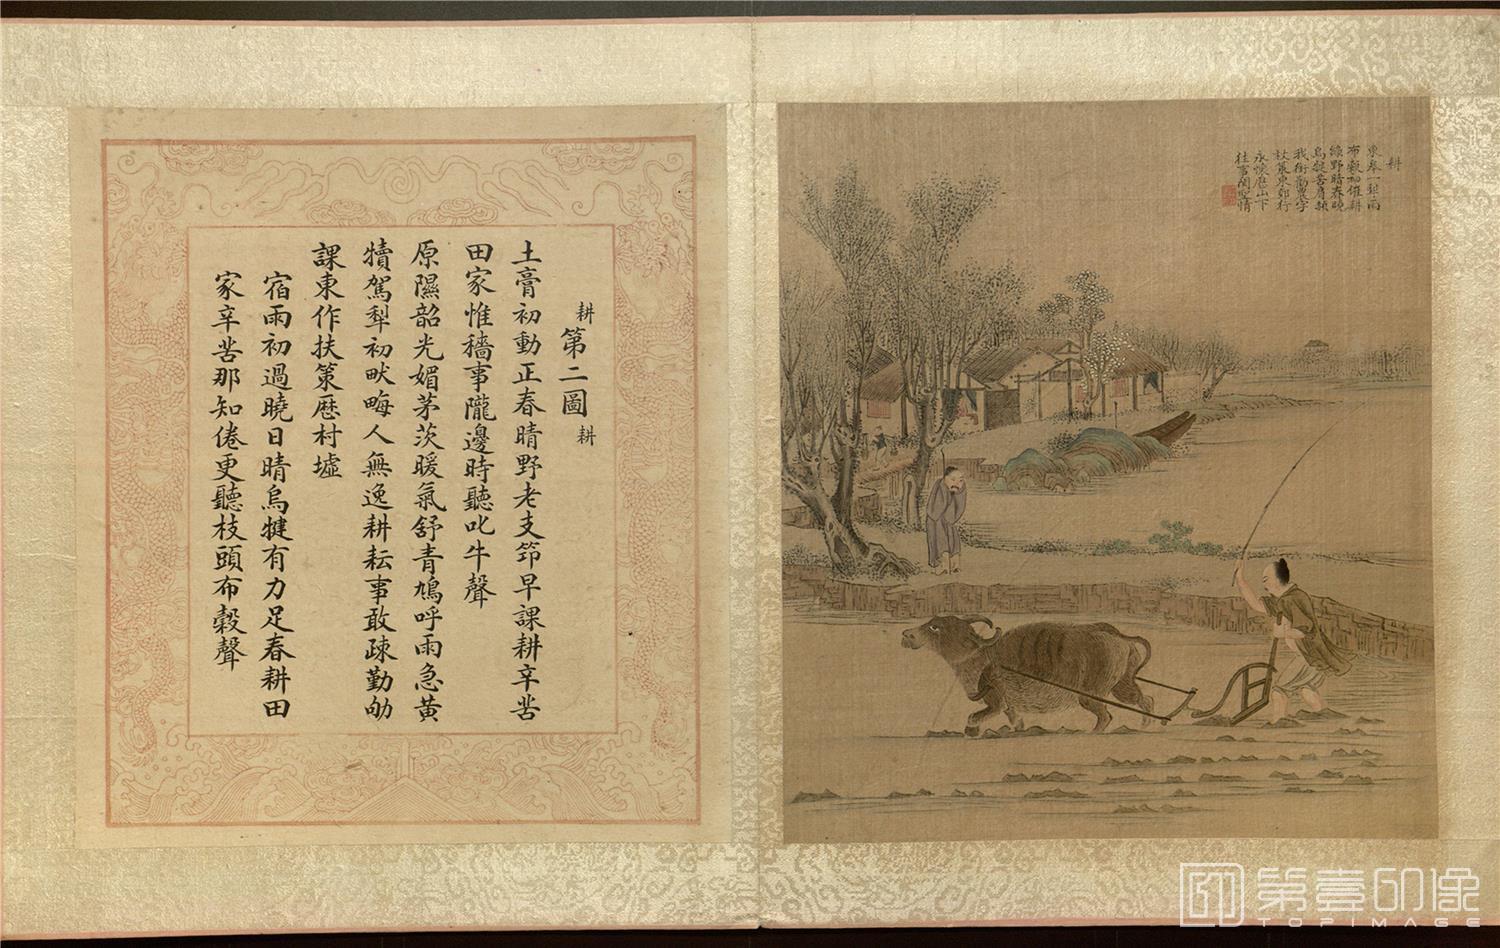 耕
東皋一犁雨
布穀初催耕
綠野暗春曉
烏犍苦肩赬
我銜勸農字
杖策東郊行
永懷歷山下
往事關聖情
耕 第二圖 耕
土膏初動正春晴野老支笻早課耕辛苦
田家惟穡事隴邊時聽叱牛聲
原隰韶光媚茅茨暖氣舒青鳩呼雨急黃
犢駕犁初畎畮人無逸耕耘事敢疎勤劬
課東作扶策歷村墟
宿雨初過曉日晴烏犍有力足春耕田
家辛苦那知倦更聽枝頭布穀聲
第壹印像
TOPIMAGE